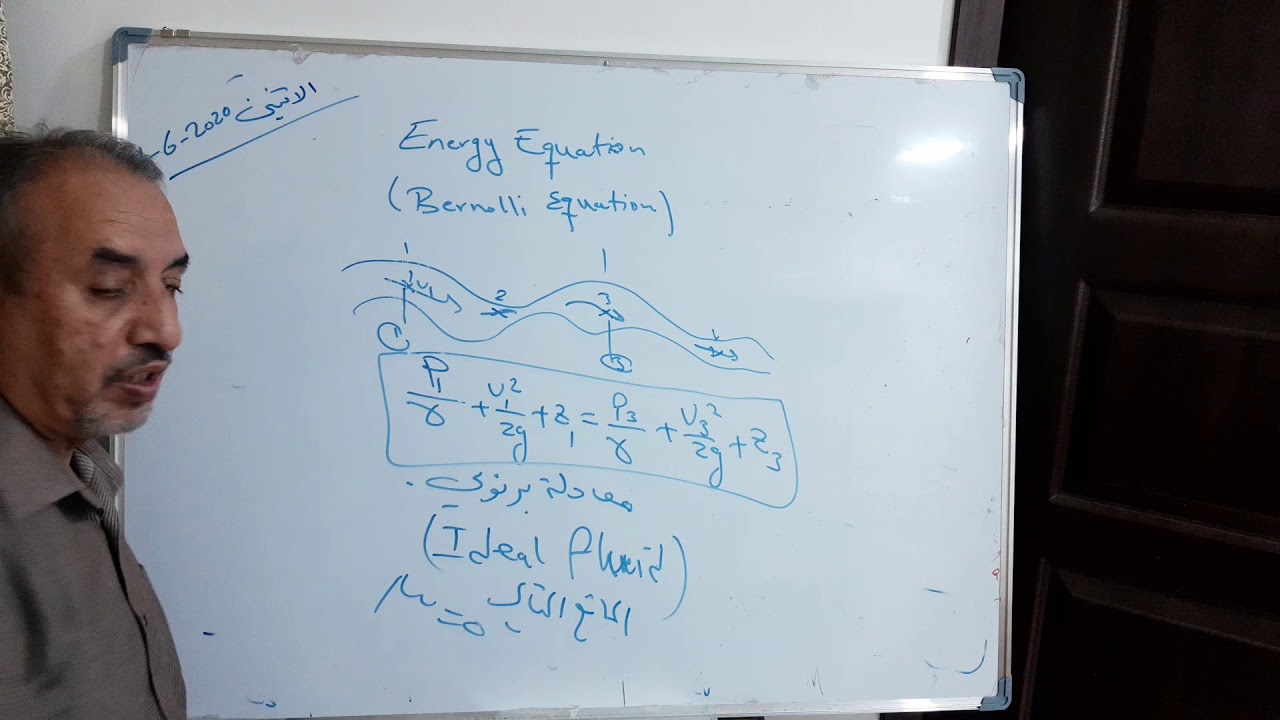 الاثنين 2020-6-
Energy Equation
(Bernolli Equation)
1 1
1 V1 2 3
1 3
P1/γ + V1²/2g + Z1 = P3/γ + V3²/2g + Z3
معادلة برنولي .
(Ideal fluid)
μ=0